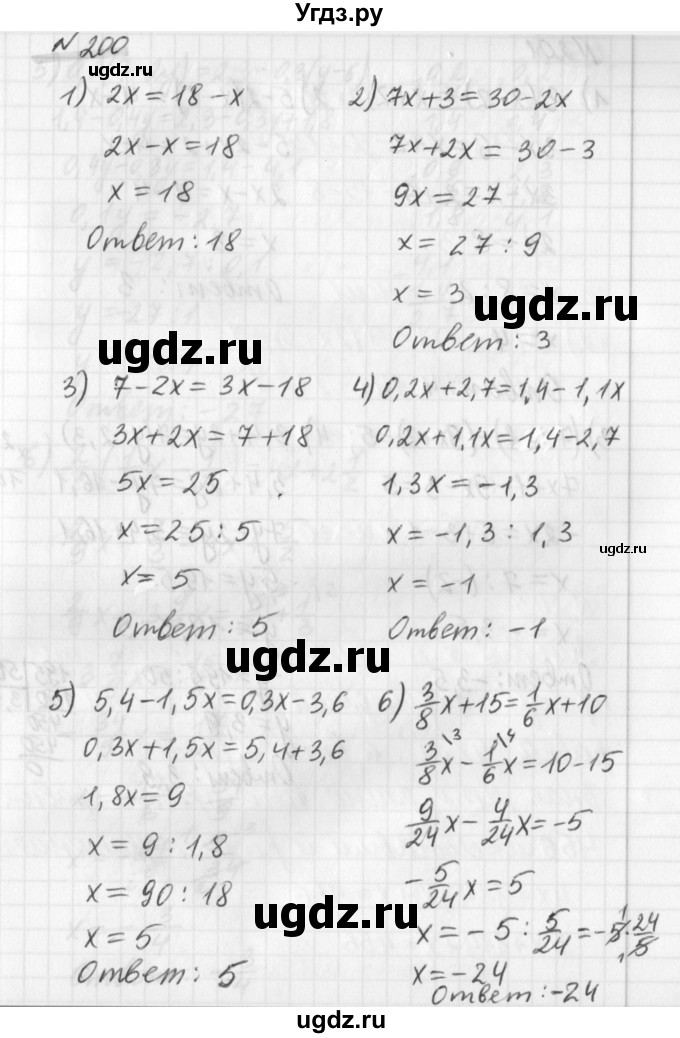 Угдз.ру
№ 200
1) 2x = 18 - x
2x - x = 18
x = 18
Ответ: 18
2) 7x + 3 = 30 - 2x
7x + 2x = 30 - 3
9x = 27
x = 27 : 9
x = 3
Ответ: 3
3) 7 - 2x = 3x - 18
3x + 2x = 7 + 18
5x = 25
x = 25 : 5
x = 5
Ответ: 5
4) 0,2x + 2,7 = 1,4 - 1,1x
0,2x + 1,1x = 1,4 - 2,7
1,3x = -1,3
x = -1,3 : 1,3
x = -1
Ответ: -1
5) 5,4 - 1,5x = 0,3x - 3,6
0,3x + 1,5x = 5,4 + 3,6
1,8x = 9
x = 9 : 1,8
x = 90 : 18
x = 5
Ответ: 5
6) 3/8 x + 15 = 1/6 x + 10
3/8 \3 x - 1/6 \4 x = 10 - 15
9/24 x - 4/24 x = -5
- 5/24 x = 5
x = - 5 : 5/24 = - 5 1 · 24/5 1
x = -24
Ответ: -24
ugdz.ru
ugdz.ru
ugdz.ru
ugdz.ru
ugdz.ru
ugdz.ru
ugdz.ru
ugdz.ru
ugdz.ru
ugdz.ru
ugdz.ru